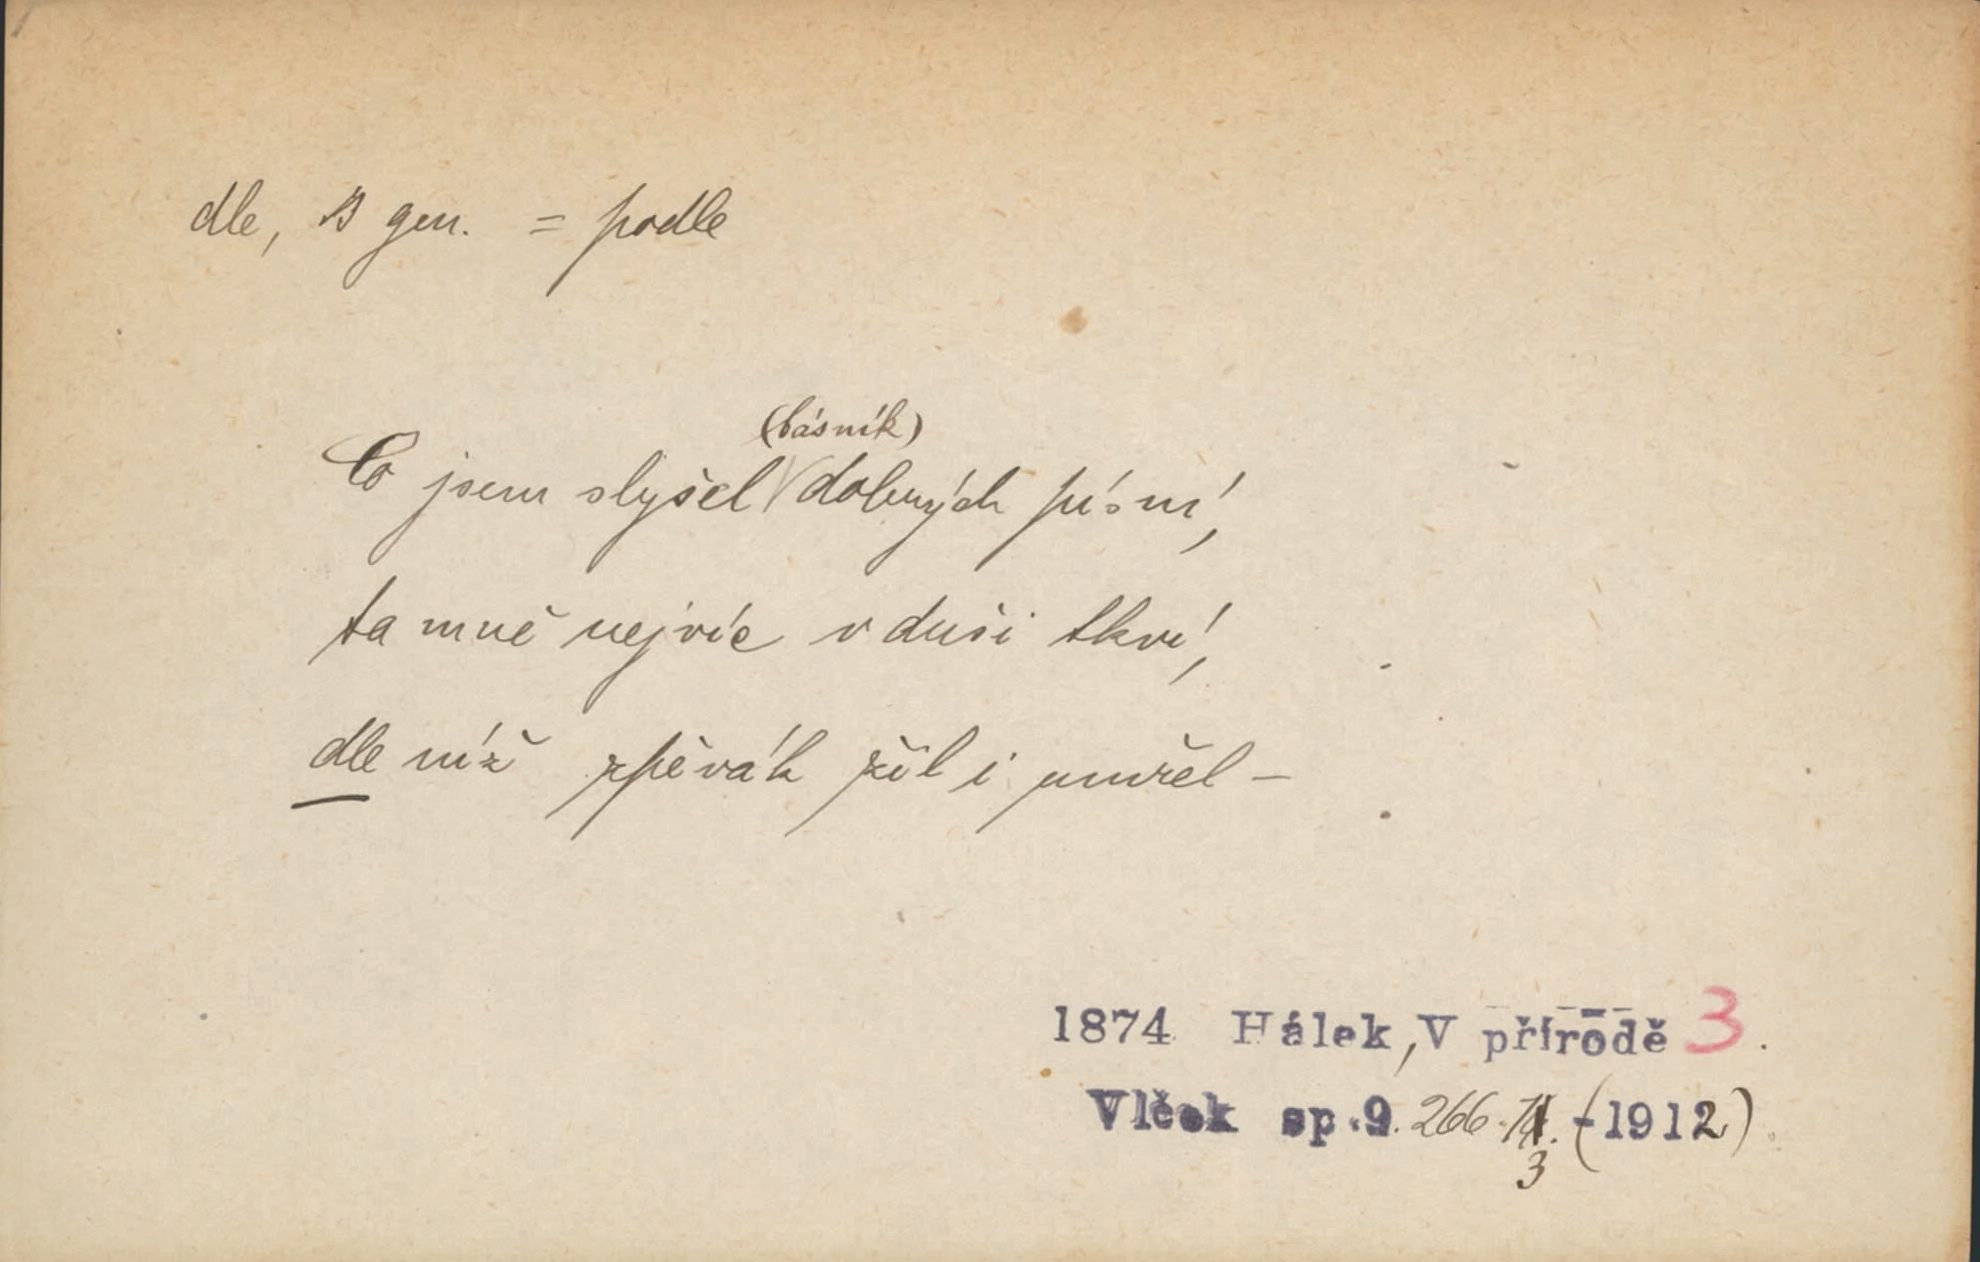 dle, s gen. = podle
(básník)
Co jsem slyšel dobrých písní,
ta mně nejvíc v duši tkví,
dle níž zpěvák žil i umřel –
1874 Hálek, V přírodě 3.
Vlček sp. 9. 266. (-1912)
3